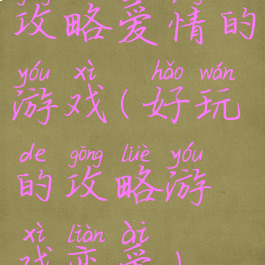 攻略爱情的
yóu xì hǎo wán
游戏(好玩
de gōng lüè yóu
的攻略游
xì liàn ài
戏恋爱)